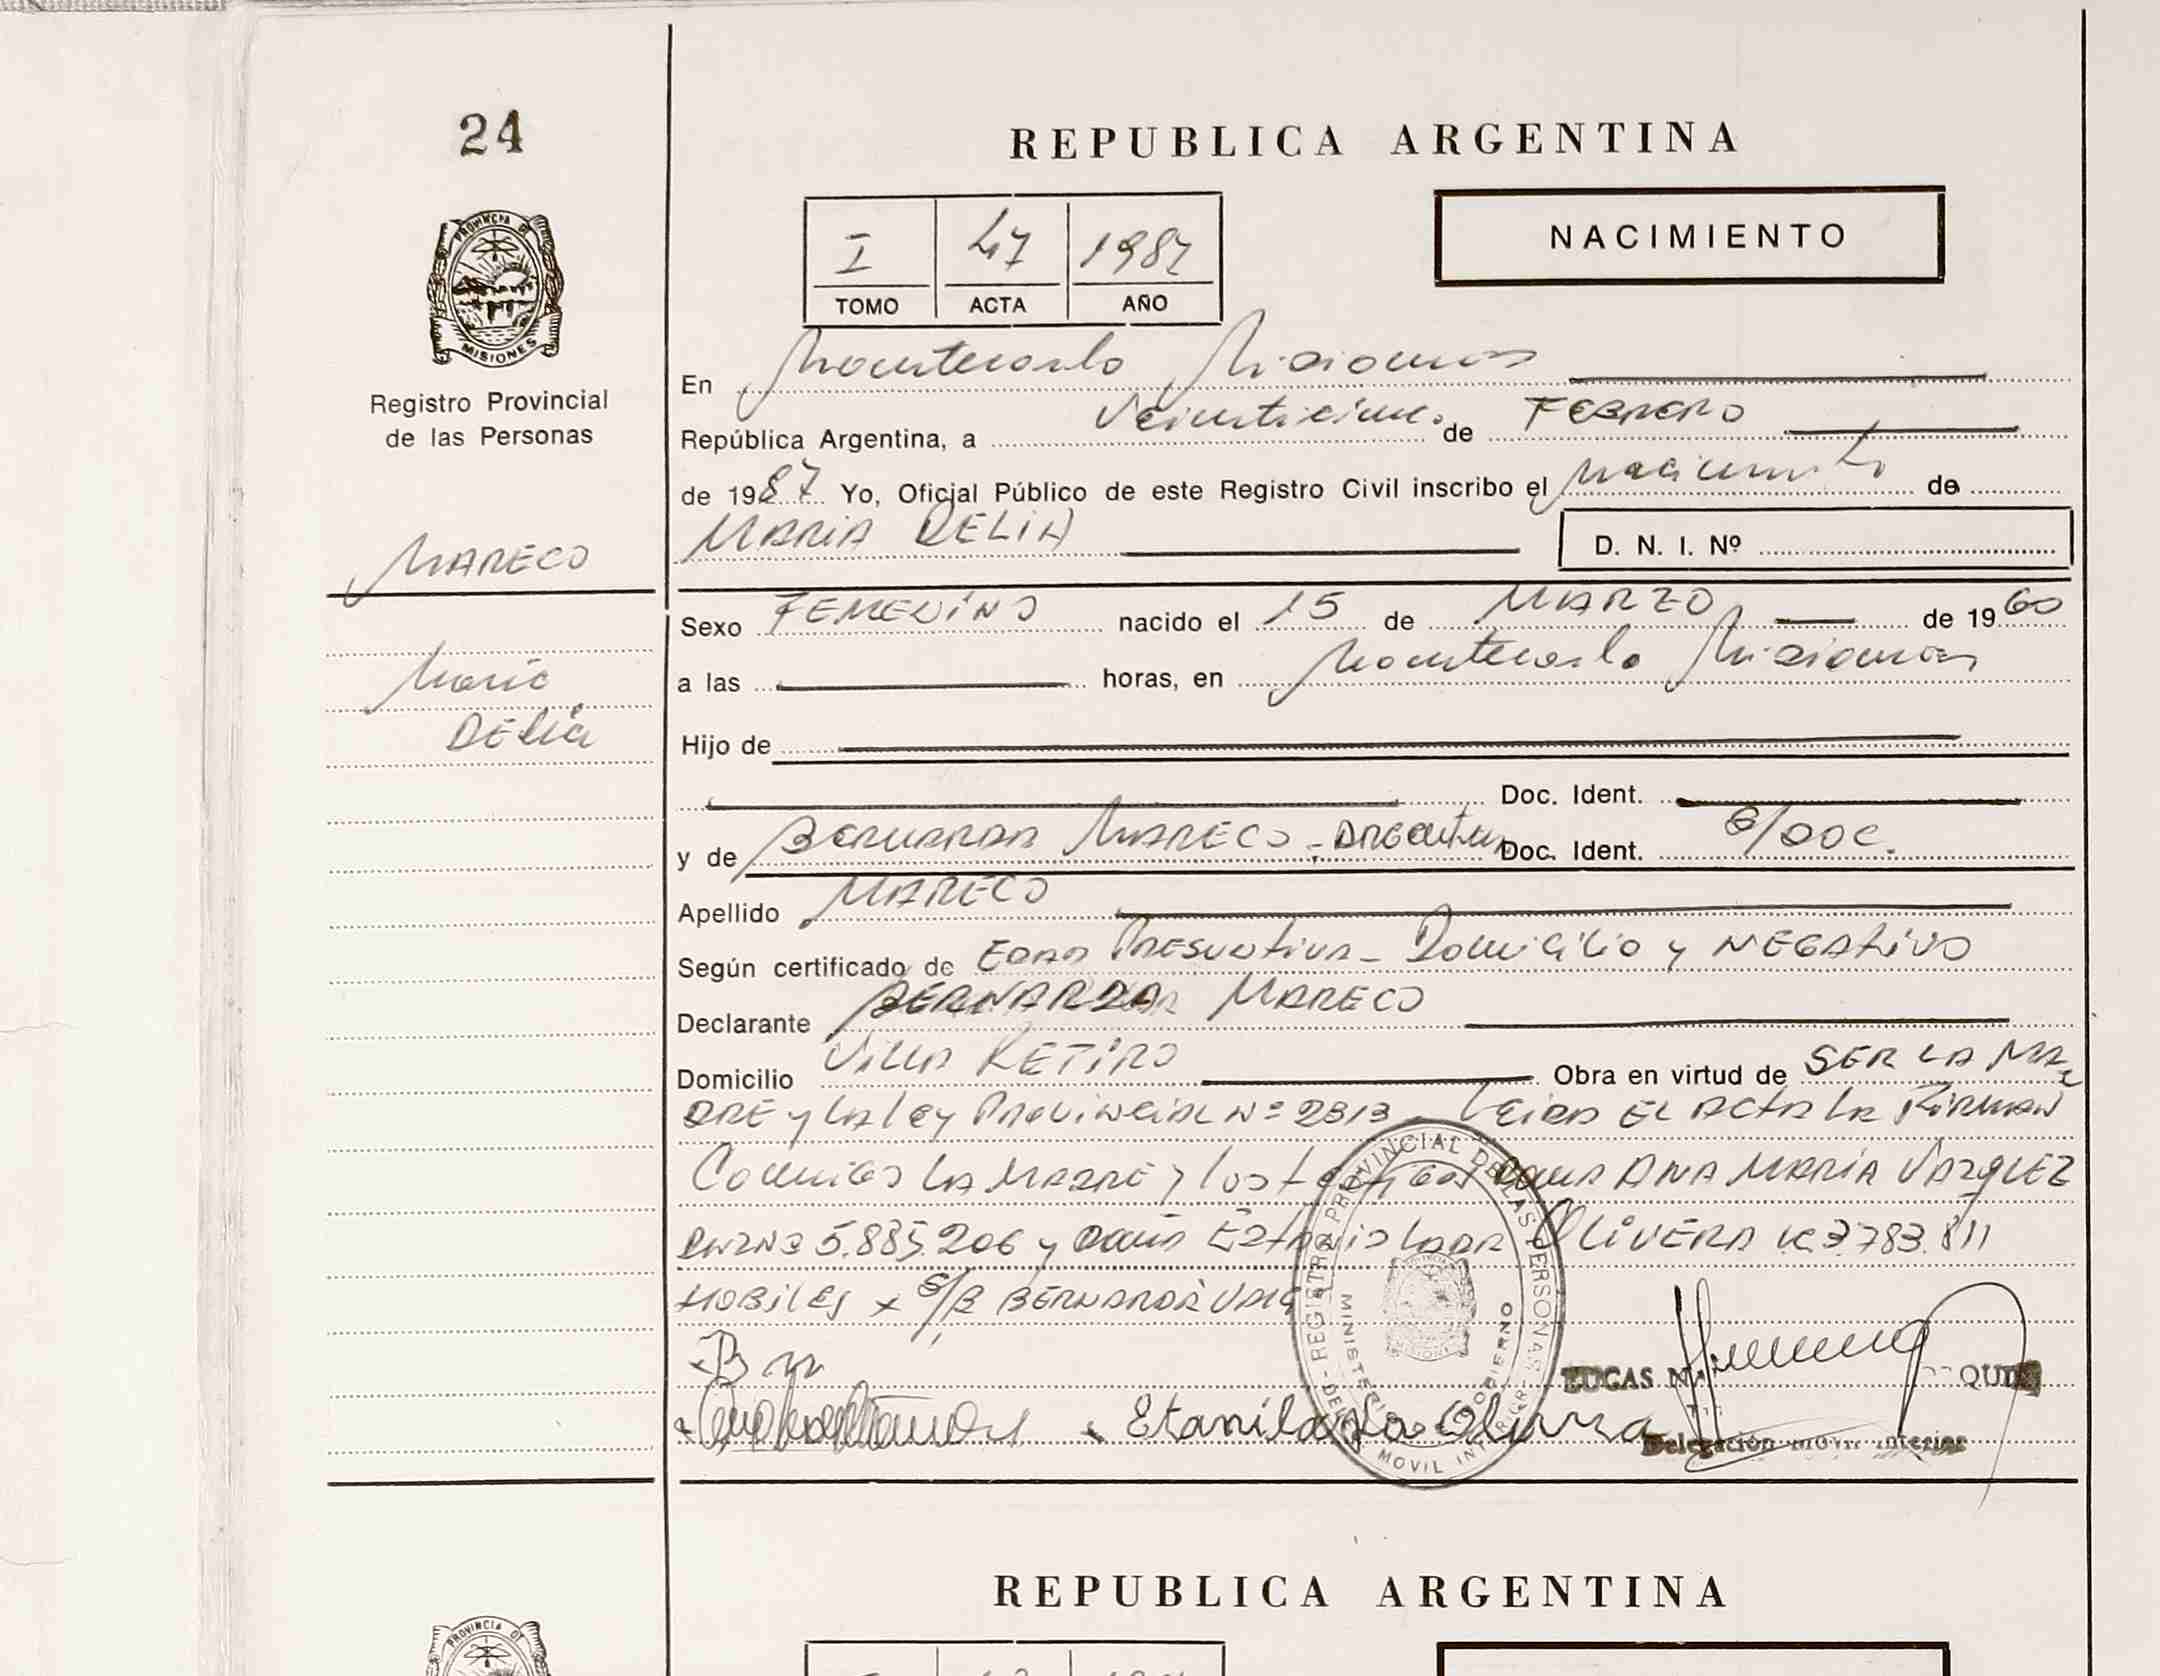 24
REPUBLICA ARGENTINA
PROVINCIA DE
MISIONES
Registro Provincial
de las Personas
I 47 1987
TOMO ACTA AÑO
NACIMIENTO
En Montecarlo Misiones
República Argentina, a Veinticinco de FEBRERO
de 1987 Yo, Oficial Público de este Registro Civil inscribo el nacimiento de
MARECO
MARIA DELIA
D. N. I. Nº
Sexo FEMENINO nacido el 15 de MARZO de 1960
María
DELIA
a las horas, en Montecarlo Misiones
Hijo de
Doc. Ident.
y de BERNARDA MARECO - ARGENTINA Doc. Ident. S/DOC.
Apellido MARECO
Según certificado de EDAD PRESUNTIVA - DOMICILIO y NEGATIVO
Declarante BERNARDA MARECO
Domicilio VILLA RETIRO Obra en virtud de SER LA MA
DRE y LA LEY PROVINCIAL Nº 2313 - LEIDA EL ACTA LA FIRMAN
CONMIGO LA MADRE y los testigos DOÑA ANA MARIA VAZQUEZ
DNI Nº 5.885.206 y DOÑA ESTANISLADA OLIVERA 3.783.811
HOBILES x S/R BERNARDA VALE
B M
Estanilada Olivera
LUCAS N. QUI
Delegación Movil Interior
REGISTRO PROVINCIAL DE LAS PERSONAS
MINISTERIO GOBIERNO
MOVIL INTERIOR
MISIONES
REPUBLICA ARGENTINA
PROVINCIA DE